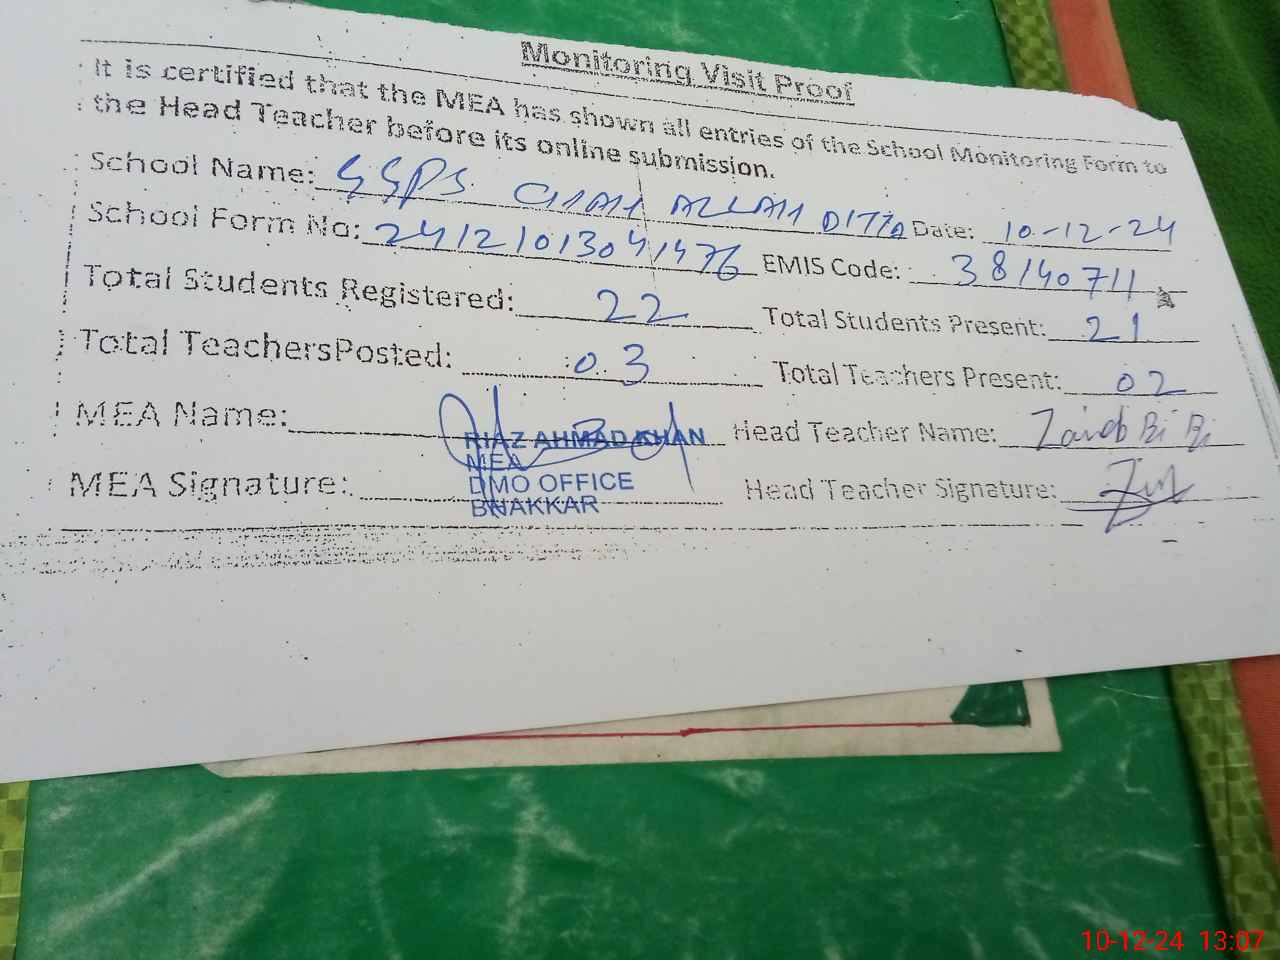 Monitoring Visit Proof
It is certified that the MEA has shown all entries of the School Monitoring Form to
the Head Teacher before its online submission.
School Name: GGPS CHAH ALLAH DITTA Date: 10-12-24
School Form No: 24121013041476 EMIS Code: 38140711
Total Students Registered: 22 Total Students Present: 21
Total TeachersPosted: 03 Total Teachers Present: 02
MEA Name: RIAZ AHMAD KHAN Head Teacher Name: Zainab Bi Bi
MEA
MEA Signature: DMO OFFICE Head Teacher Signature:
BHAKKAR
10-12-24 13:07